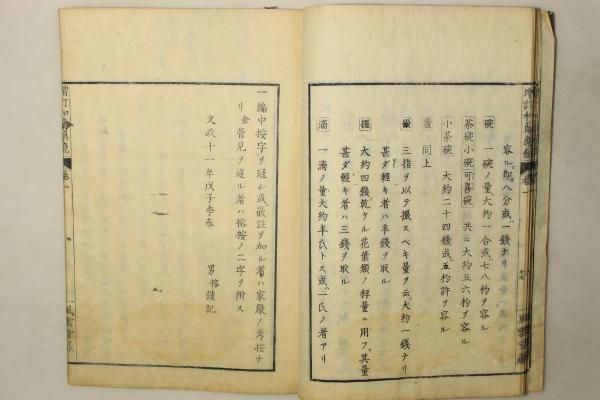 容ル即八分或一錢ナリ
碗 一碗ノ量大約一合或七八杓ヲ容ル
茶碗小碗可喜碗 共ニ大約五六杓ヲ容ル
小茶碗 大約二十四錢或五杓許ヲ容ル
同上
撮 三指ヲ以テ撮スベキ量ヲ云大約一錢ナリ
甚ダ輕キ者ハ半錢ヲ取ル
握 大約四錢乾ケル花葉類ノ稱量ニ用フ其量
甚ダ輕キ者ハ三錢ヲ取ル
滴 一滴ノ量大約半氐トス或一氐ノ者アリ
一編中按字ヲ冠シ或嵌註ヲ加ル者ハ家嚴ノ考按ナ
リ余管見ヲ述ル者ハ榕按ノ二字ヲ附ス
文政十一年戊子季春
男榕謹記
卷一